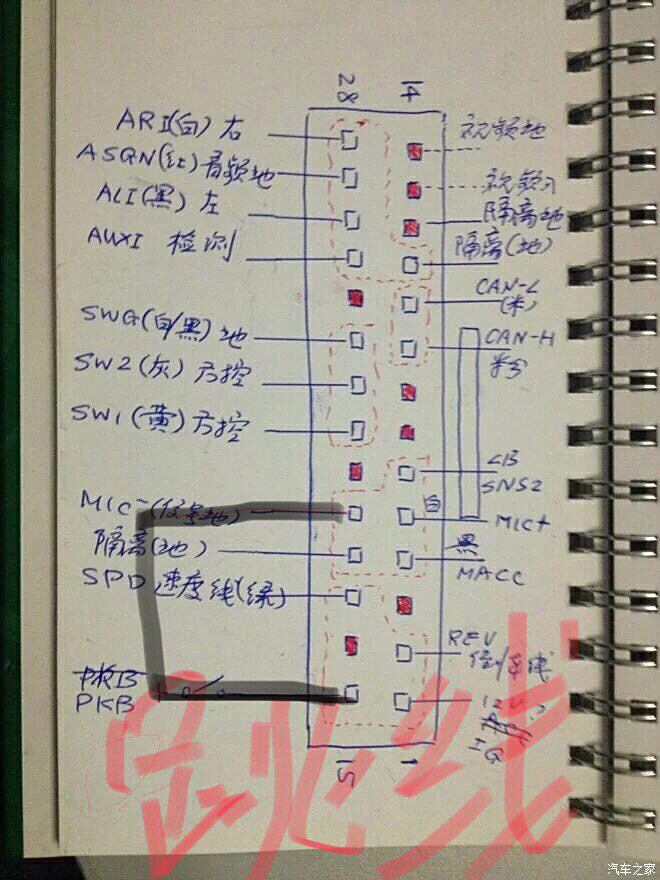 28
14
ARI(白)右
ASGN(红)音频地
ALI(黑)左
AUXI 检测
SWG(白/黑)地
SW2(灰)方控
SW1(黄)方控
MIC-(信号地)
隔离(地)
SPD 速度线(绿)
PKB
PKB
15
视频地
视频入
隔离地
隔离(地)
CAN-L
CAN-H
SNS2
白 MIC+
黑
MACC
REV
倒车线
12V
IG
1
跳线
汽车之家